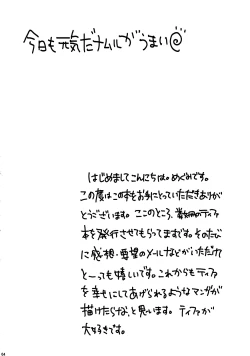 今日も元気だナムルがうまい@
はじめましてこんにちは。めぐみです。
この度はこの本をお手にとっていただきありが
とうございます。ここのところ、
本を発行させてもらってます。そのたび
に感想・要望のメールなどがいただけ
と~っても嬉しいです。これからもティファ
を幸せにしてあげられるようなマンガが
描けたらな、と思います。ティファが
大好きです。
04